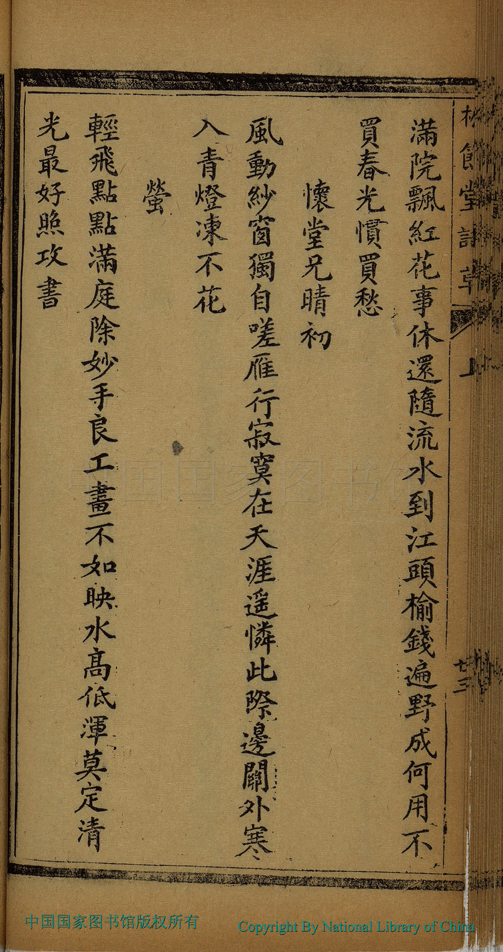 滿院飄紅花事休還隨流水到江頭榆錢遍野成何用不
買春光慣買愁
懷堂兄晴初
風動紗窗獨自嗟雁行寂寞在天涯遥憐此際邊關外寒
入青燈凍不花
螢
輕飛點點滿庭除妙手良工畫不如映水高低渾莫定清
光最好照攻書
上
廿三
中国国家图书馆版权所有
Copyright By National Library of China